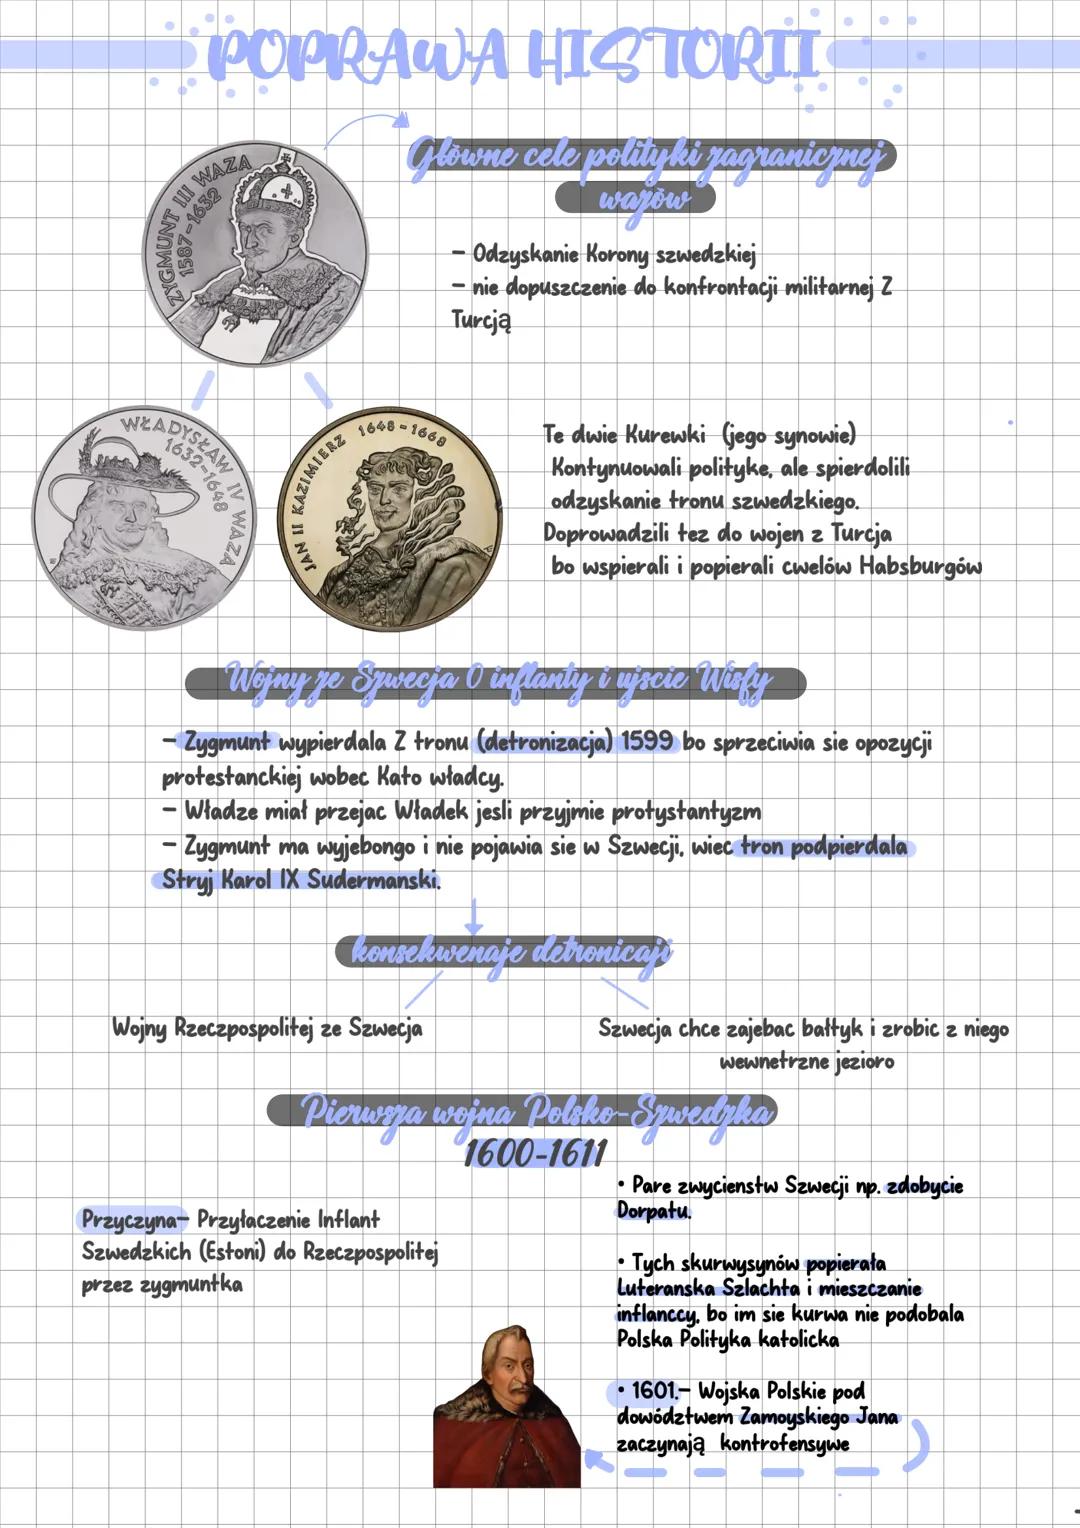 POPRAWA HISTORII
ZYGMUNT III WAZA
1587-1632
Główne cele polityki zagranicznej
wazów
- Odzyskanie Korony szwedzkiej
- nie dopuszczenie do konfrontacji militarnej Z
Turcją
WŁADYSŁAW IV WAZA
1632-1648
JAN II KAZIMIERZ 1648-1668
Te dwie Kurewki (jego synowie)
Kontynuowali polityke, ale spierdolili
odzyskanie tronu szwedzkiego.
Doprowadzili tez do wojen z Turcja
bo wspierali i popierali cwelów Habsburgów
Wojny ze Szwecja O inflanty i ujscie Wisły
- Zygmunt wypierdala Z tronu (detronizacja) 1599 bo sprzeciwia sie opozycji
protestanckiej wobec Kato władcy.
- Władze miał przejac Władek jesli przyjmie protystantyzm
- Zygmunt ma wyjebongo i nie pojawia sie w Szwecji, wiec tron podpierdala
Stryj Karol IX Sudermanski.
konsekwenaje detronicaji
Wojny Rzeczpospolitej ze Szwecja
Szwecja chce zajebac bałtyk i zrobic z niego
wewnetrzne jezioro
Pierwsza wojna Polsko-Szwedzka
1600-1611
Przyczyna- Przyłaczenie Inflant
Szwedzkich (Estoni) do Rzeczpospolitej
przez zygmuntka
• Pare zwycienstw Szwecji np. zdobycie
Dorpatu.
• Tych skurwysynów popierała
Luteranska Szlachta i mieszczanie
inflanccy, bo im sie kurwa nie podobala
Polska Polityka katolicka
• 1601.- Wojska Polskie pod
dowództwem Zamoyskiego Jana
zaczynają kontrofensywe